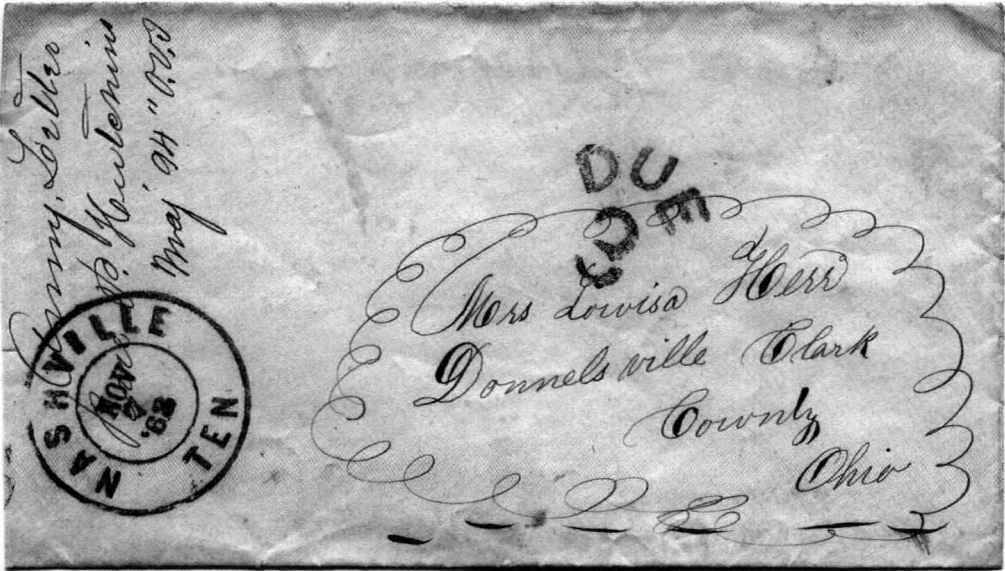 Army Letter
P. Hutchins
Maj 94" O.V.I
NASHVILLE
TEN
NOV
'63
DUE
3
Mrs Lowisa Herr
Donnelsville Clark
County
Ohio